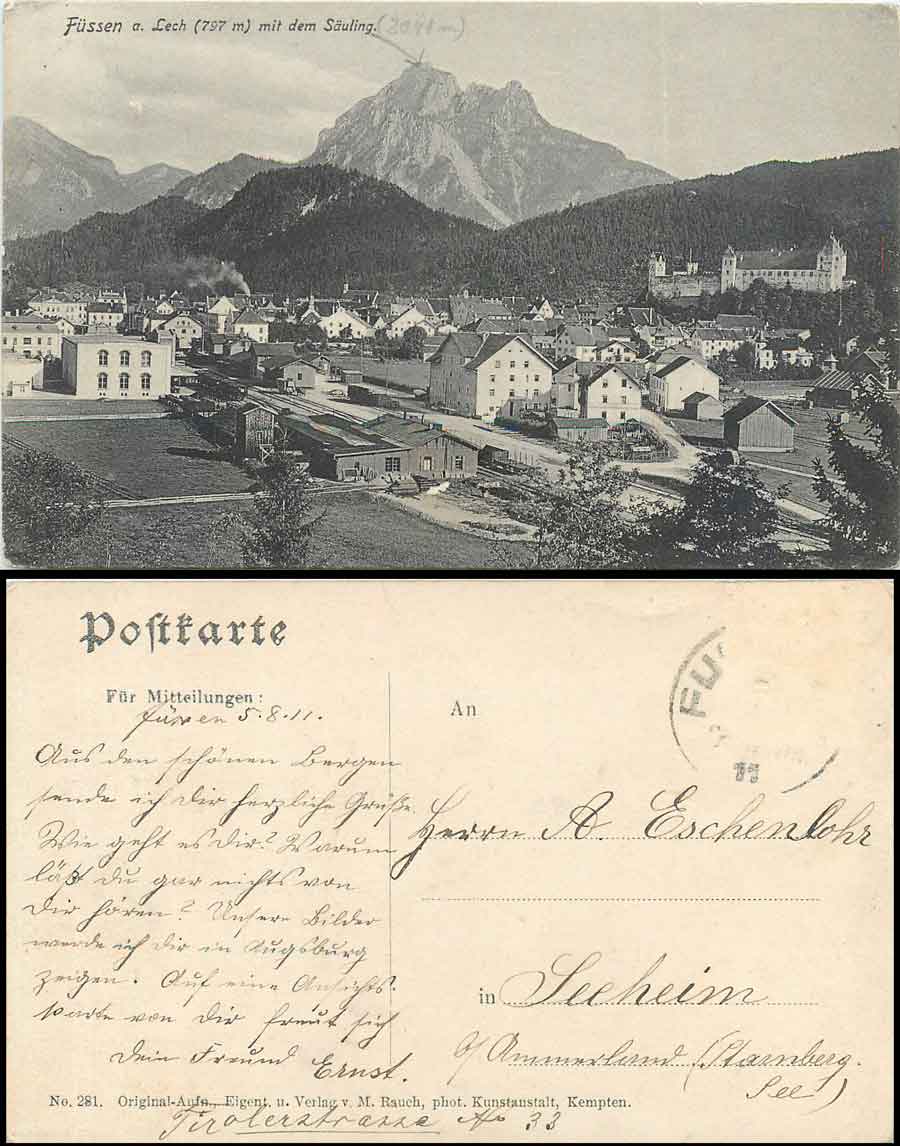 Füssen a. Lech (797 m) mit dem Säuling. (2041 m)
Postkarte
Für Mitteilungen:
Füssen 5.8.11.
Aus den schönen Bergen
sende ich Dir herzliche Grüße.
Wie geht es Dir? Warum
läßt du gar nichts von
Dir hören? Unsere Bilder
werde ich dir in Augsburg
zeigen. Auf eine Ansichts-
karte von Dir freut sich
Dein Freund Ernst.
An
FÜS
11
Herrn A. Eschenlohr
in Seeheim
b/Ammerland (Starnberg.
See)
No. 281. Original-Aufn., Eigent. u. Verlag v. M. Rauch, phot. Kunstanstalt, Kempten.
Tirolerstrasse No 33